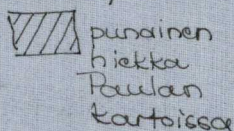 punainen
hiekka
Paulan
kartoissa